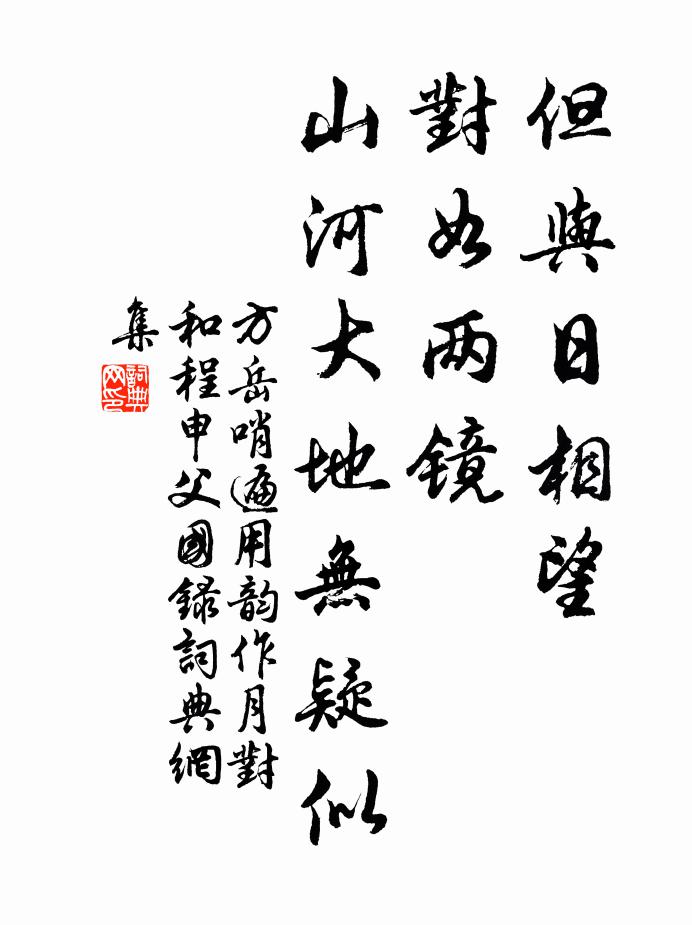 但與日相望
對如两镜
山河大地無疑似
方岳哨遍用韵作月對
和程申父國録詞典網
集
詞典
网印